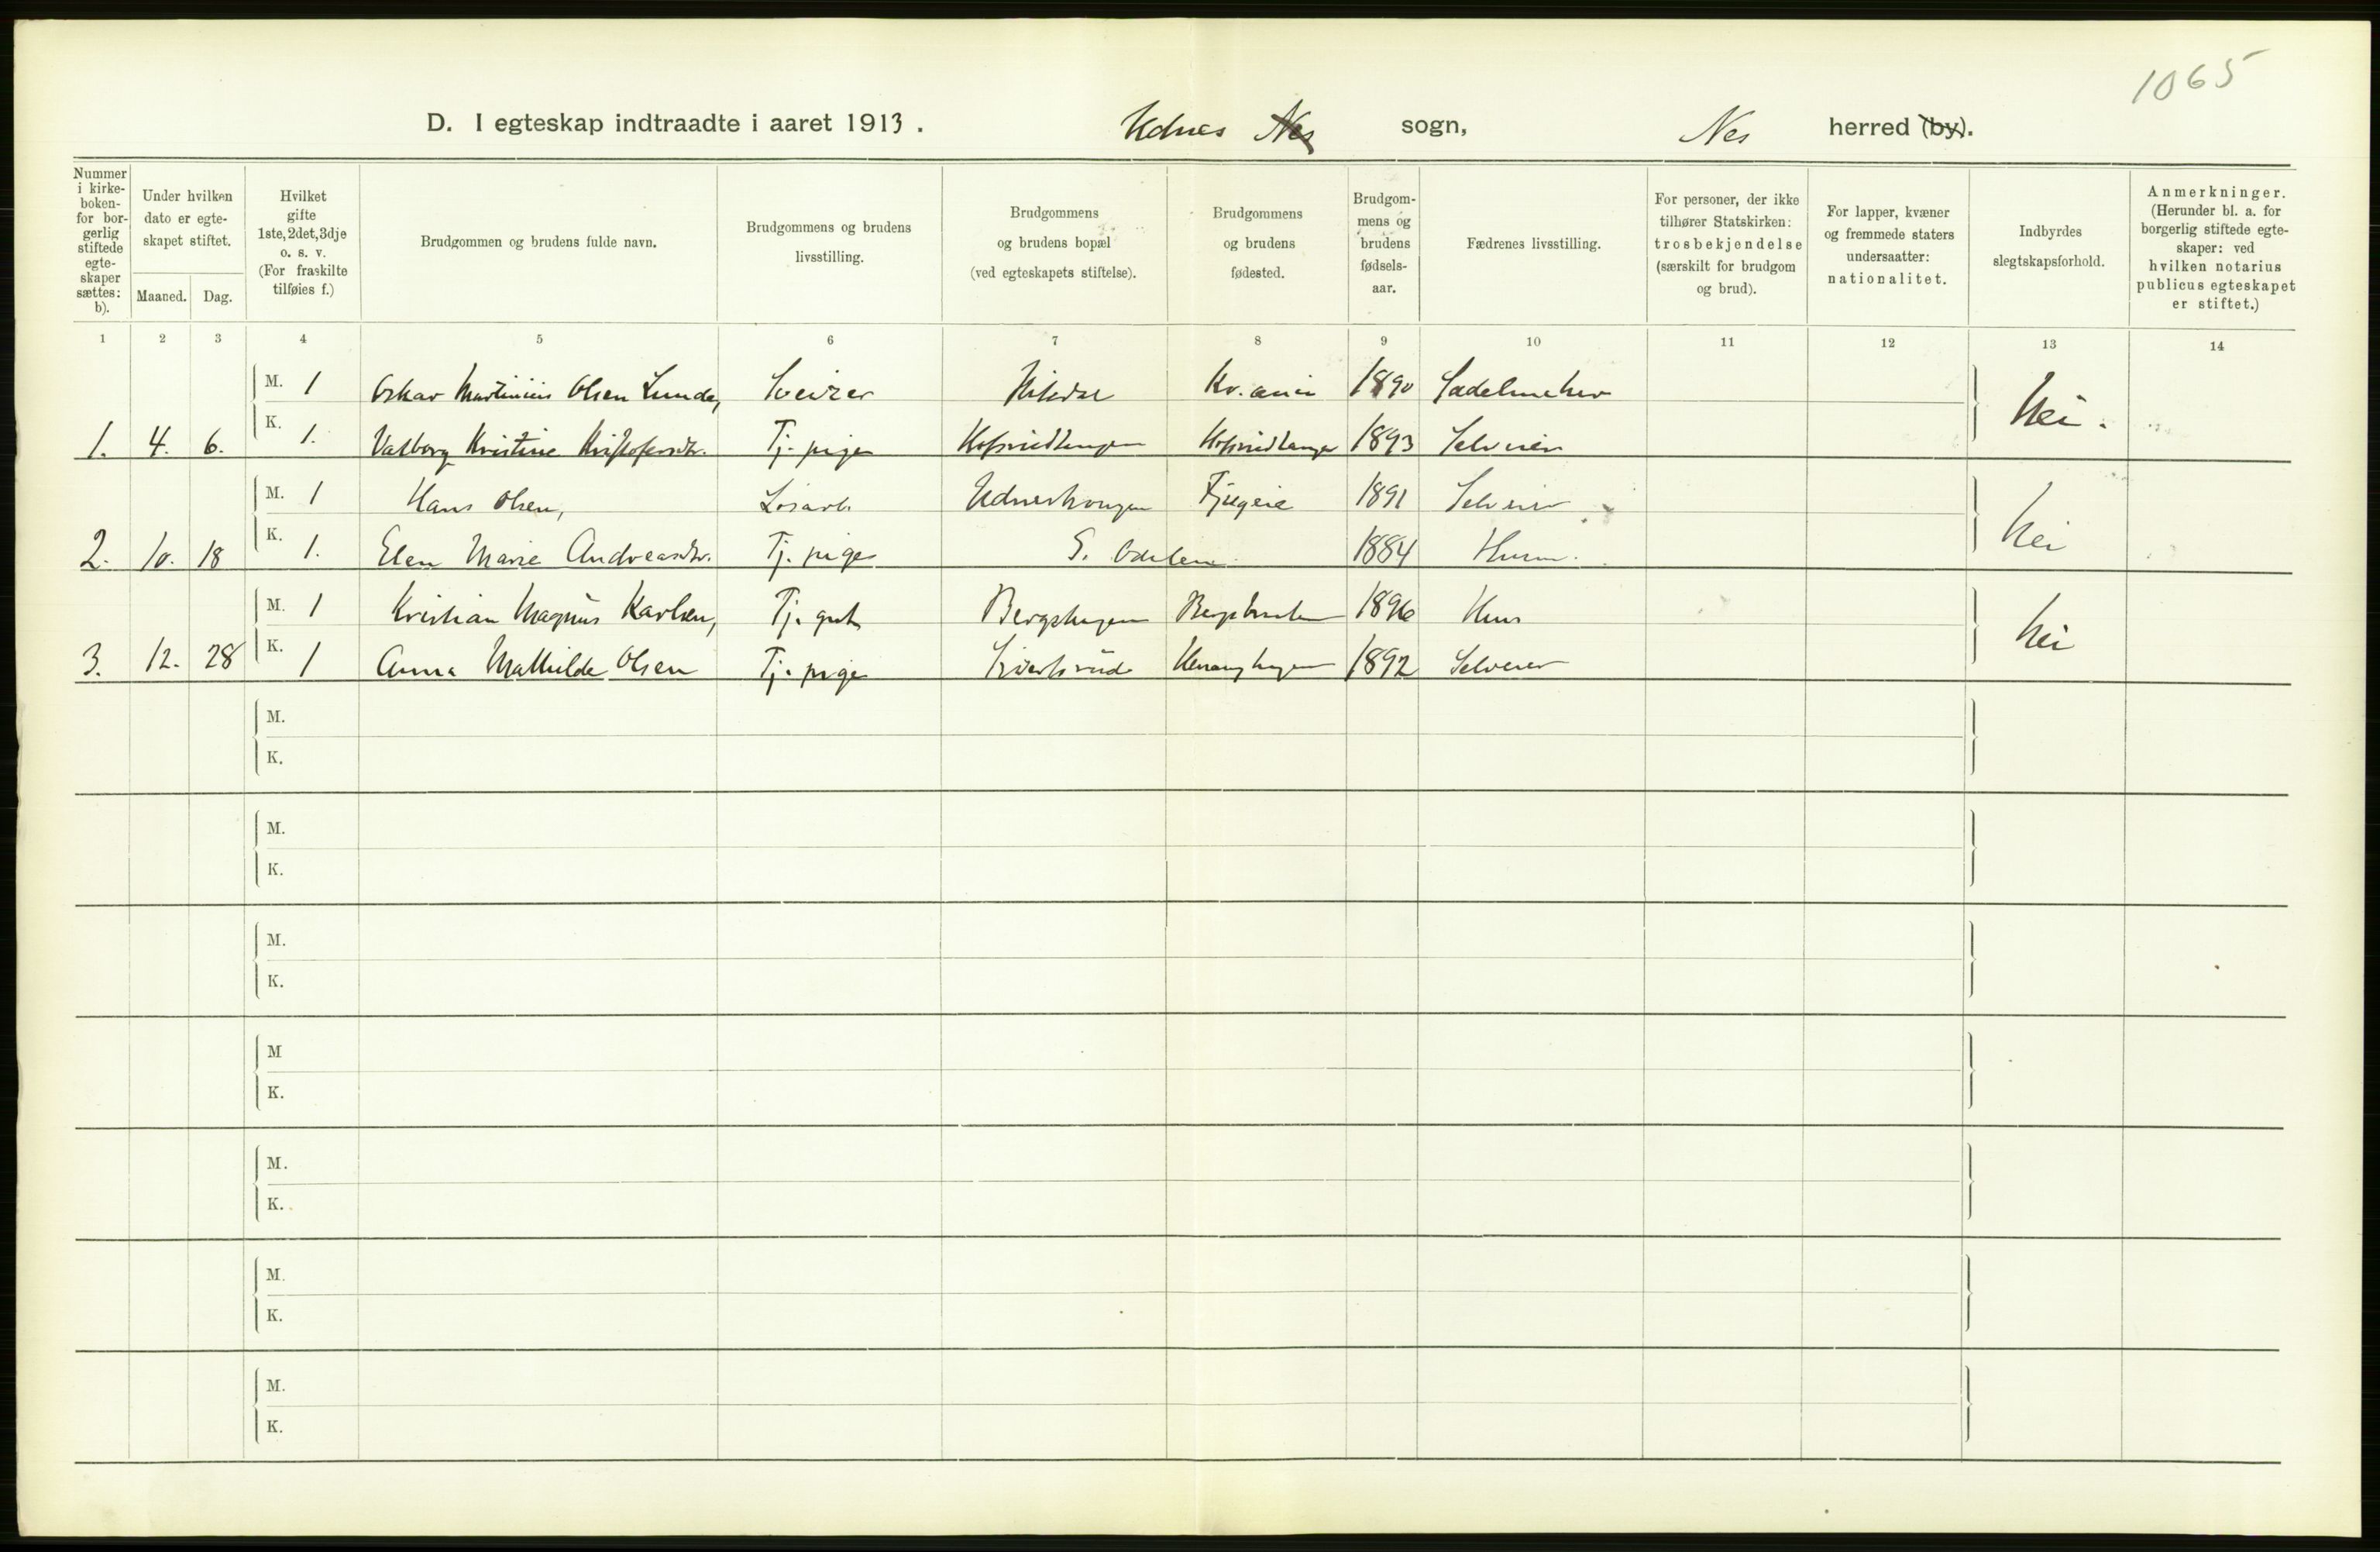 1065
D. I egteskap indtraadte i aaret 1913. Udnes Nes sogn, Nes herred (by).
Nummer i kirke-boken- for bor-gerlig stiftede egte-skaper sættes: b).
Under hvilken dato er egte-skapet stiftet.
Maaned. Dag.
Hvilket gifte 1ste, 2det, 3dje o. s. v. (For fraskilte tilføies f.)
Brudgommen og brudens fulde navn.
Brudgommens og brudens livsstilling.
Brudgommens og brudens bopæl (ved egteskapets stiftelse).
Brudgommens og brudens fødested.
Brudgom-mens og brudens fødsels-aar.
Fædrenes livsstilling.
For personer, der ikke tilhører Statskirken: trosbekjendelse (særskilt for brudgom og brud).
For lapper, kvæner og fremmede staters undersaatter: nationalitet.
Indbyrdes slegtskapsforhold.
Anmerkninger. (Herunder bl. a. for borgerlig stiftede egte-skaper: ved hvilken notarius publicus egteskapet er stiftet.)
1 2 3 4 5 6 7 8 9 10 11 12 13 14
M. 1 Oskar Martinius Olsen Lunde, Sveizer Kr.ania 1890 Sadelmaker
1. 4. 6. K. 1. Valborg Kristine Kristofersdtr. Tj. pige 1893 Selveier
Nei.
M. 1 Hans Olsen, Løsarb. 1891 Selveier
2. 10. 18 K. 1. Elen Marie Andreasdtr. Tj. pige S. Odalen 1884 Husm.
Nei
M. 1 Kristian Magnus Karlsen, Tj. gut Bergshagen 1896 Hus
3. 12. 28 K. 1 Anna Mathilde Olsen Tj. pige 1892 Selveier
Nei
M.
K.
M.
K.
M.
K.
M
K.
M.
K.
M.
K.
M.
K.